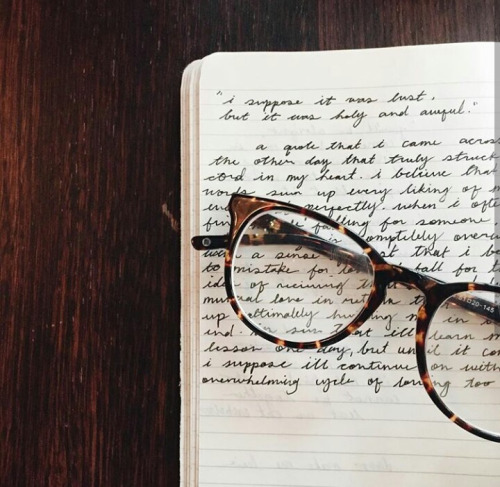 "i suppose it was lust,
but it was holy and awful."
a quote that i came across
the other day that truly struck
cord in my heart. i believe that
words sum up every liking of
perfectly. when i
falling for someone
with a sense that i
to mistake for fall for
of receiving
mutual love in return
up ultimately
end. sin that ill learn
lesson one day, but until it
i suppose ill continue on with
overwhelming cycle of loving too
20-145